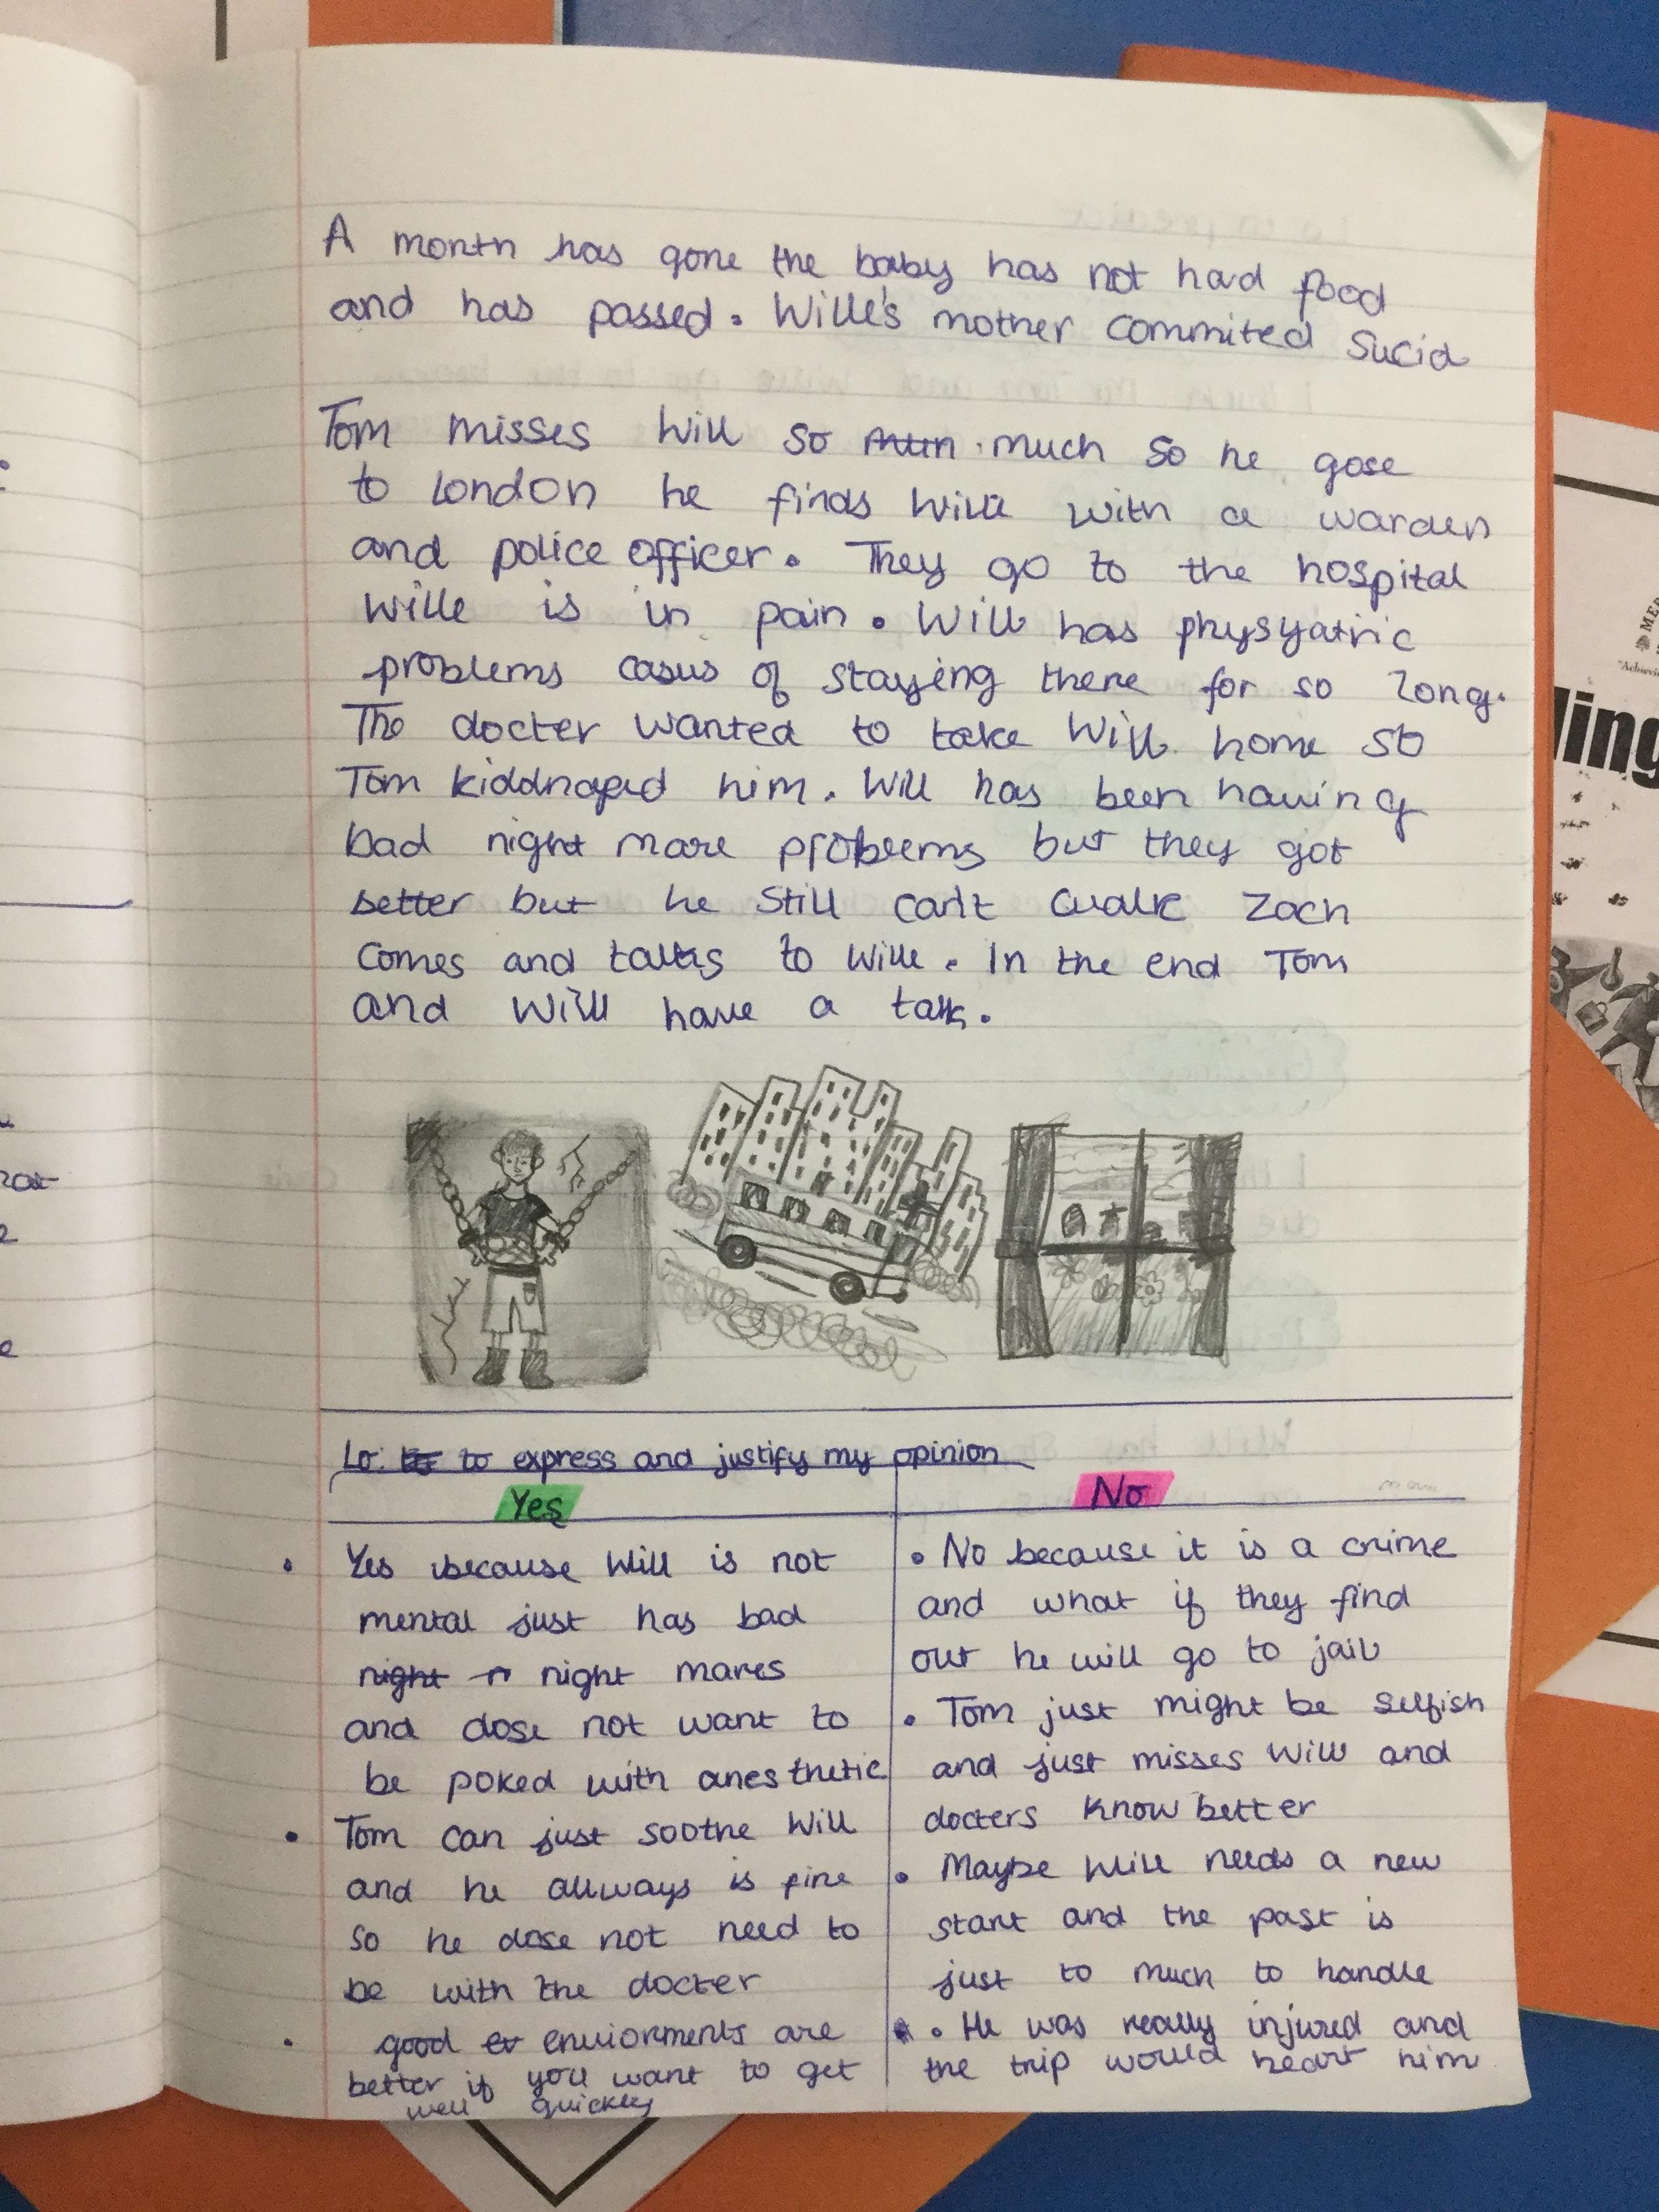 A month has gone the baby has not had food
and has passed. Wille's mother commited Sucid
Tom misses Will so much so he gose
to london he finds Will with a warden
and police officer. They go to the hospital
Wille is in pain. Will has physyatric
problems casus of staying there for so long.
The docter wanted to take Will home so
Tom kiddnaped him. Will has been having
bad night mare problems but they got
better but he still can't walk Zach
comes and talks to Wille. In the end Tom
and Will have a talk.
Lo: to express and justify my opinion
Yes
Yes because Will is not
mental just has bad
night night mares
and dose not want to
be poked with anesthetic
Tom can just soothe Will
and he allways is fine
so he dose not need to
be with the docter
good enviorments are
better if you want to get
well quickly
No
No because it is a crime
and what if they find
out he will go to jail
Tom just might be selfish
and just misses Will and
docters know better
Maybe Will needs a new
start and the past is
just to much to handle
He was really injured and
the trip would heart him
ling